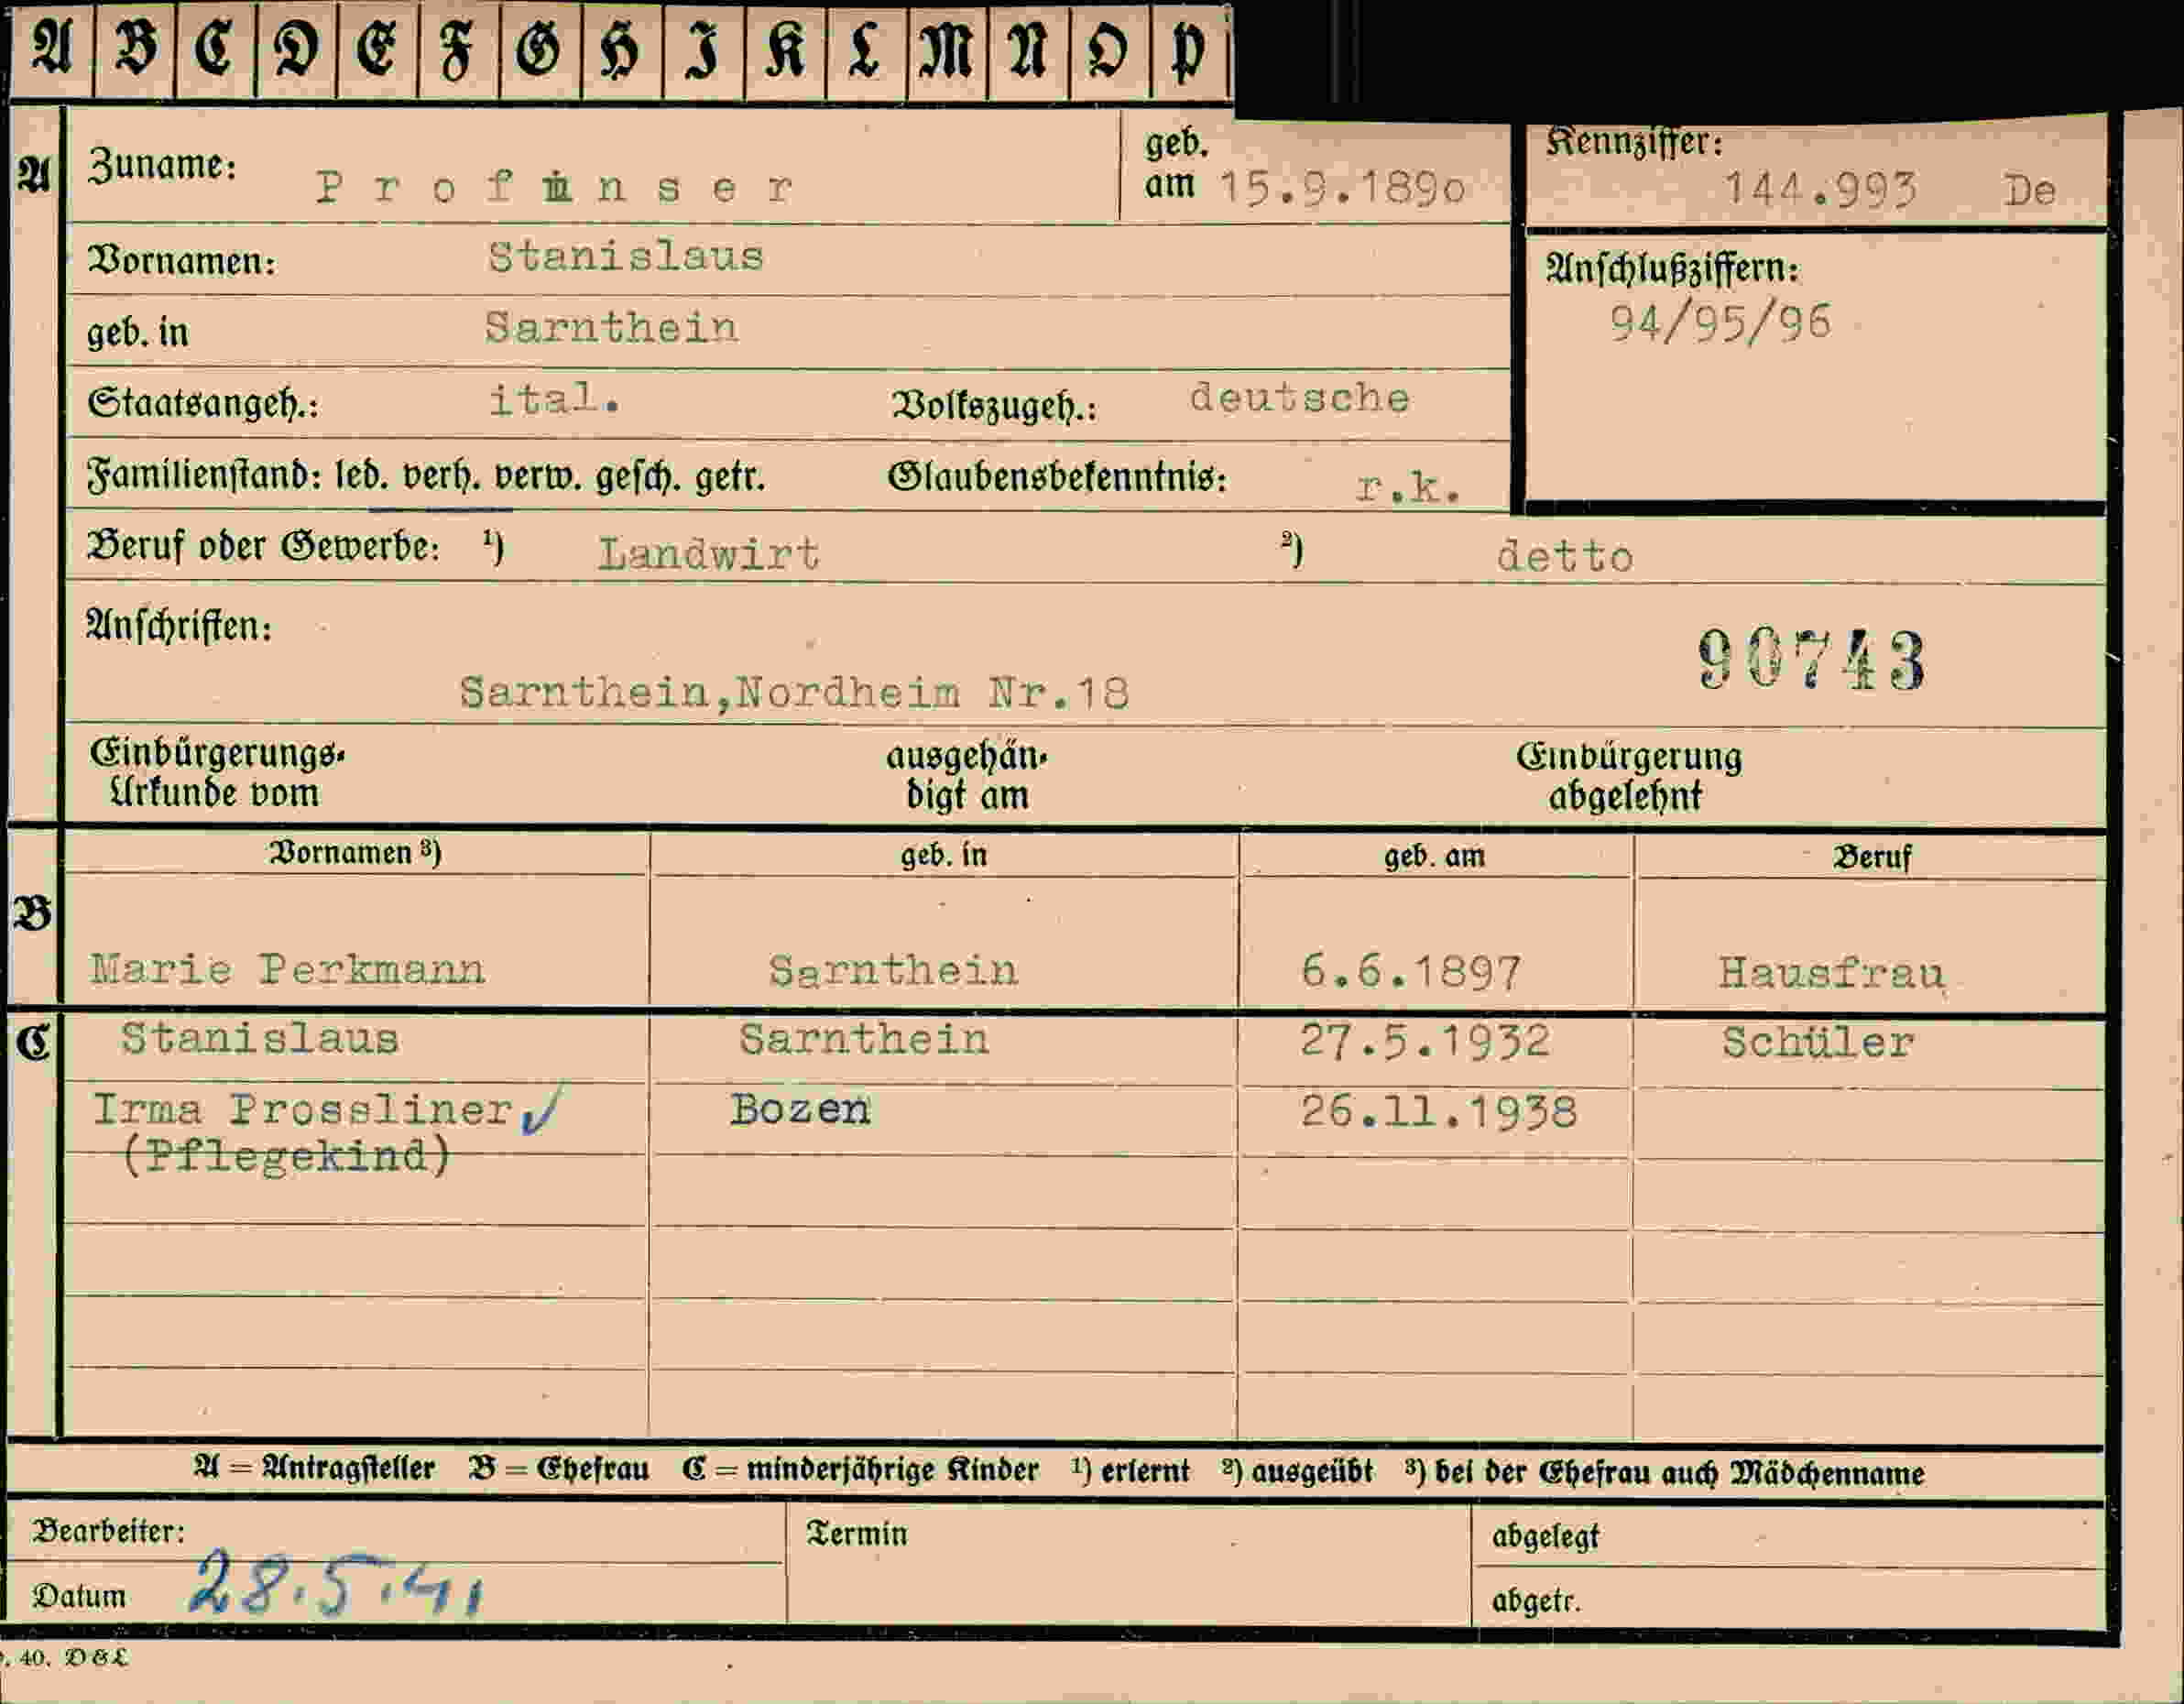 A B C D E F G H I K L M N O P
A Zuname: Profanser geb. am 15.9.1890 Kennziffer: 144.993 De
Vornamen: Stanislaus Anschlußziffern:
geb. in Sarnthein 94/95/96
Staatsangeh.: ital. Volkszugeh.: deutsche
Familienstand: led. verh. verw. gesch. getr. Glaubensbekenntnis: r.k.
Beruf oder Gewerbe: ¹) Landwirt ²) detto
Anschriften:
90743
Sarnthein,Nordheim Nr.18
Einbürgerungs- ausgehän- Einbürgerung
Urkunde vom digt am abgelehnt
Vornamen ³) geb. in geb. am Beruf
B
Marie Perkmann Sarnthein 6.6.1897 Hausfrau
C Stanislaus Sarnthein 27.5.1932 Schüler
Irma Prossliner Bozen 26.11.1938
(Pflegekind)
A = Antragsteller B = Ehefrau C = minderjährige Kinder ¹) erlernt ²) ausgeübt ³) bei der Ehefrau auch Mädchenname
Bearbeiter: Termin abgelegt
Datum 28.5.41 abgetr.
40. D&L